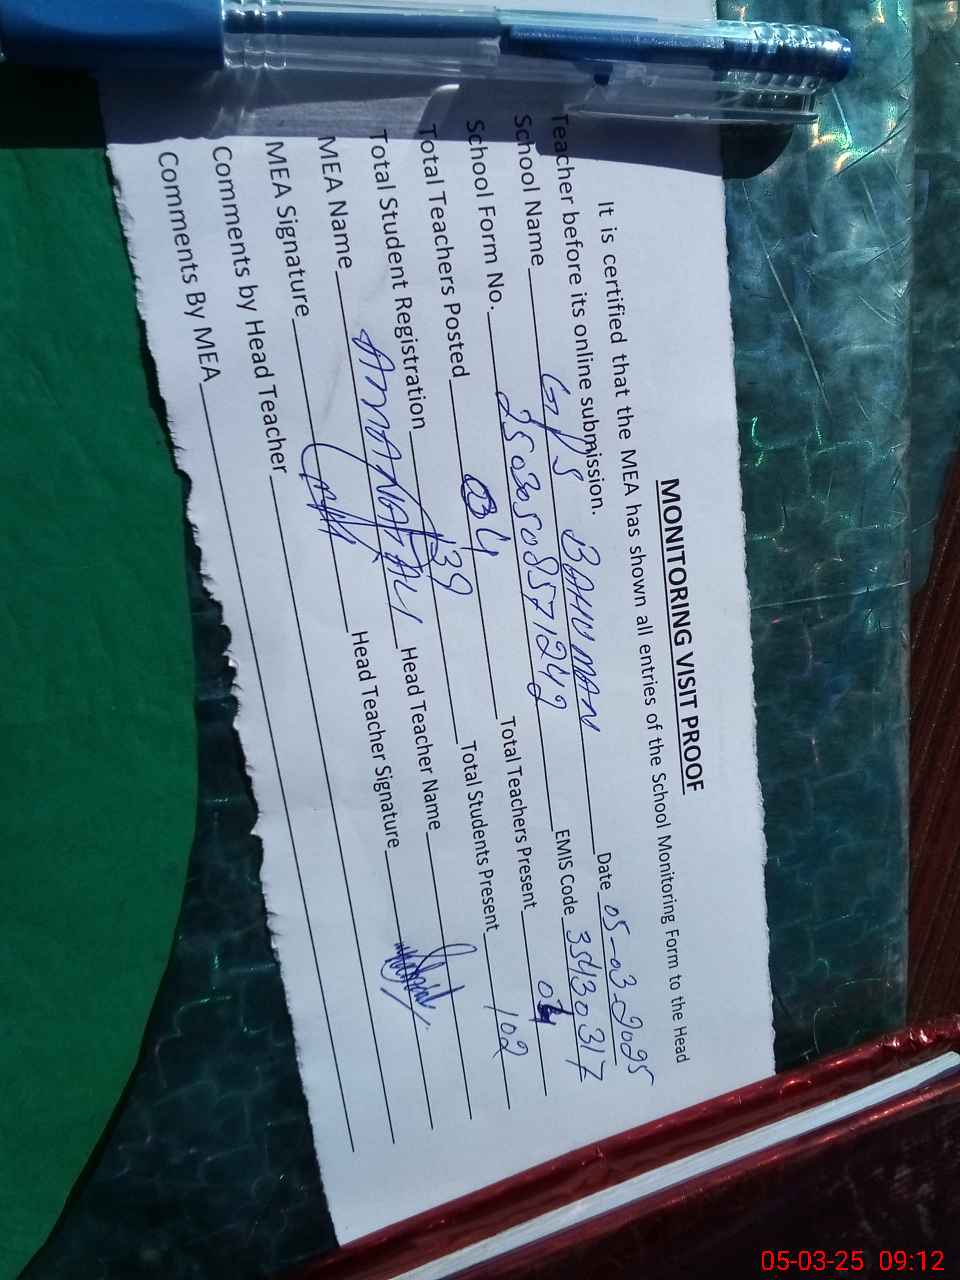 MONITORING VISIT PROOF
It is certified that the MEA has shown all entries of the School Monitoring Form to the Head
Teacher before its online submission.
School Name GPS BAHUMAN Date 05-03-2025
School Form No. 25030508571242 EMIS Code 35430317
Total Teachers Posted 04 Total Teachers Present 04
Total Student Registration 139 Total Students Present 102
MEA Name AMANAT ALI Head Teacher Name
MEA Signature Head Teacher Signature
Comments by Head Teacher
Comments By MEA
05-03-25 09:12